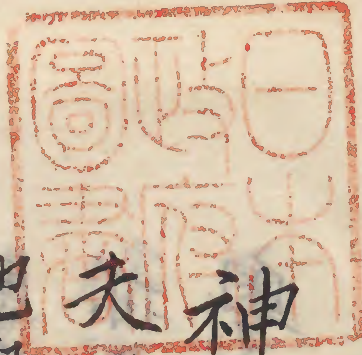 日本
政府
圖書
神
夫